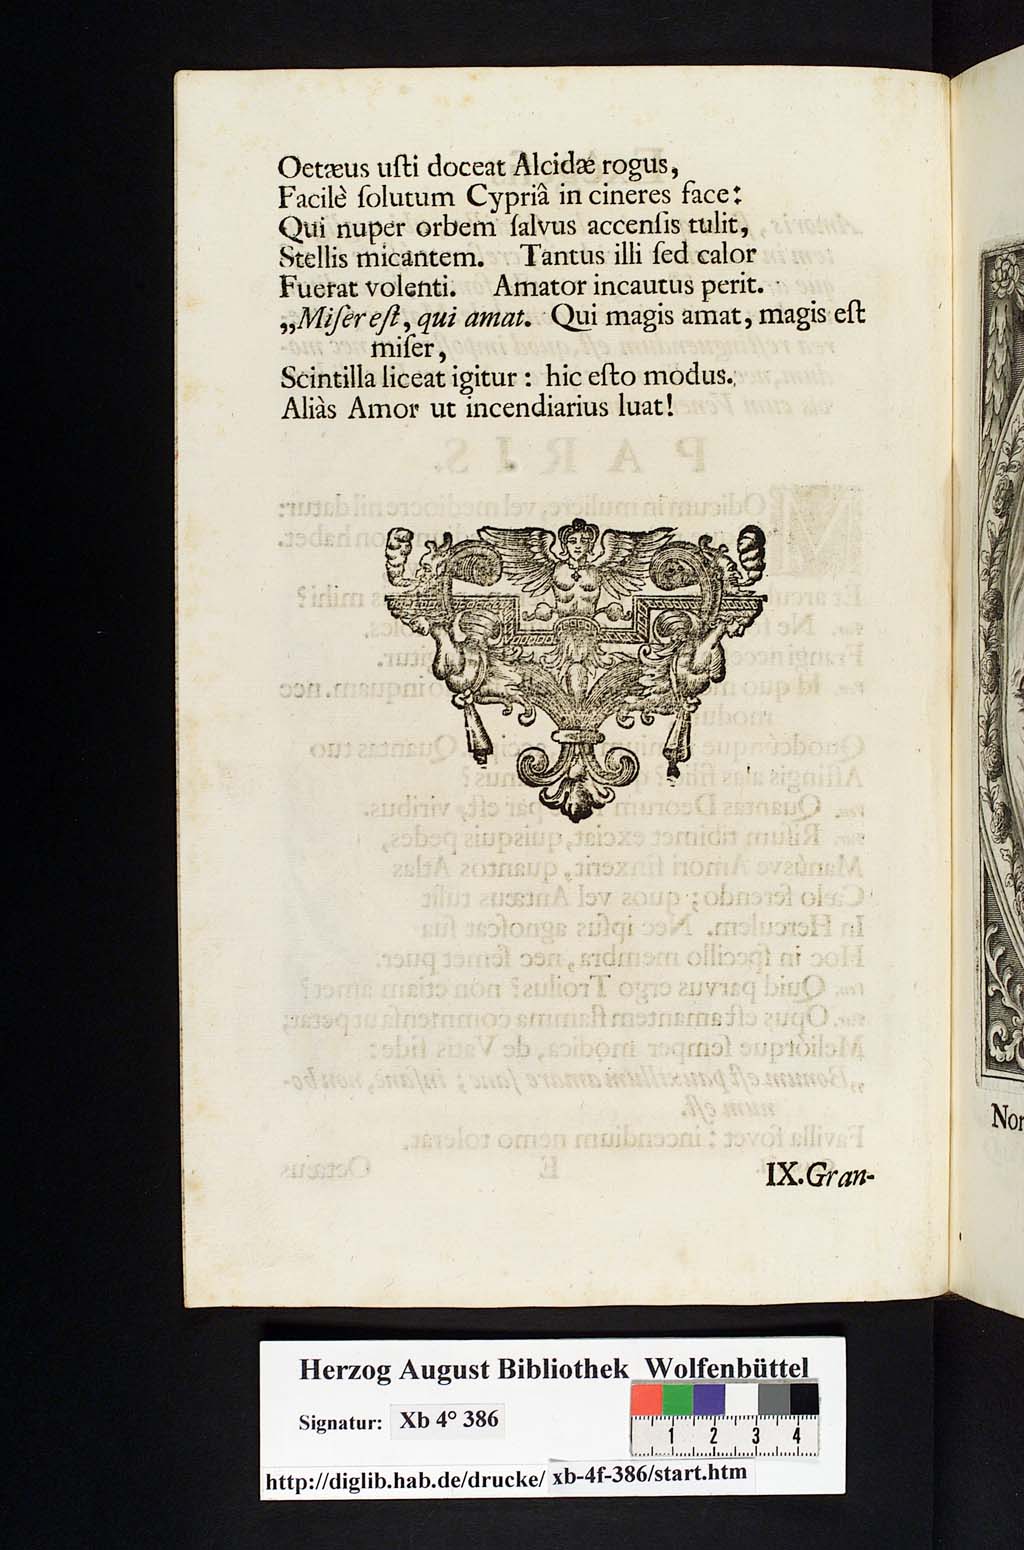 Oetæus uſti doceat Alcidæ rogus,
Facilè ſolutum Cypriâ in cineres face:
Qui nuper orbem ſalvus accenſis tulit,
Stellis micantem. Tantus illi ſed calor
Fuerat volenti. Amator incautus perit.
„Miſer eſt, qui amat. Qui magis amat, magis eſt
miſer,
Scintilla liceat igitur : hic eſto modus.
Aliàs Amor ut incendiarius luat!
IX. Gran-
Nor
Herzog August Bibliothek Wolfenbüttel
Signatur: Xb 4° 386
1 2 3 4
http://diglib.hab.de/drucke/ xb-4f-386/start.htm